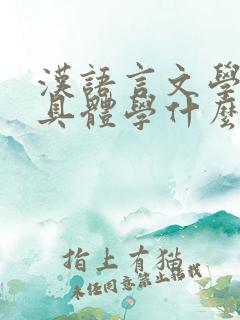 漢語言文學
具體學什麼
指上有猫
未经同意禁止转载